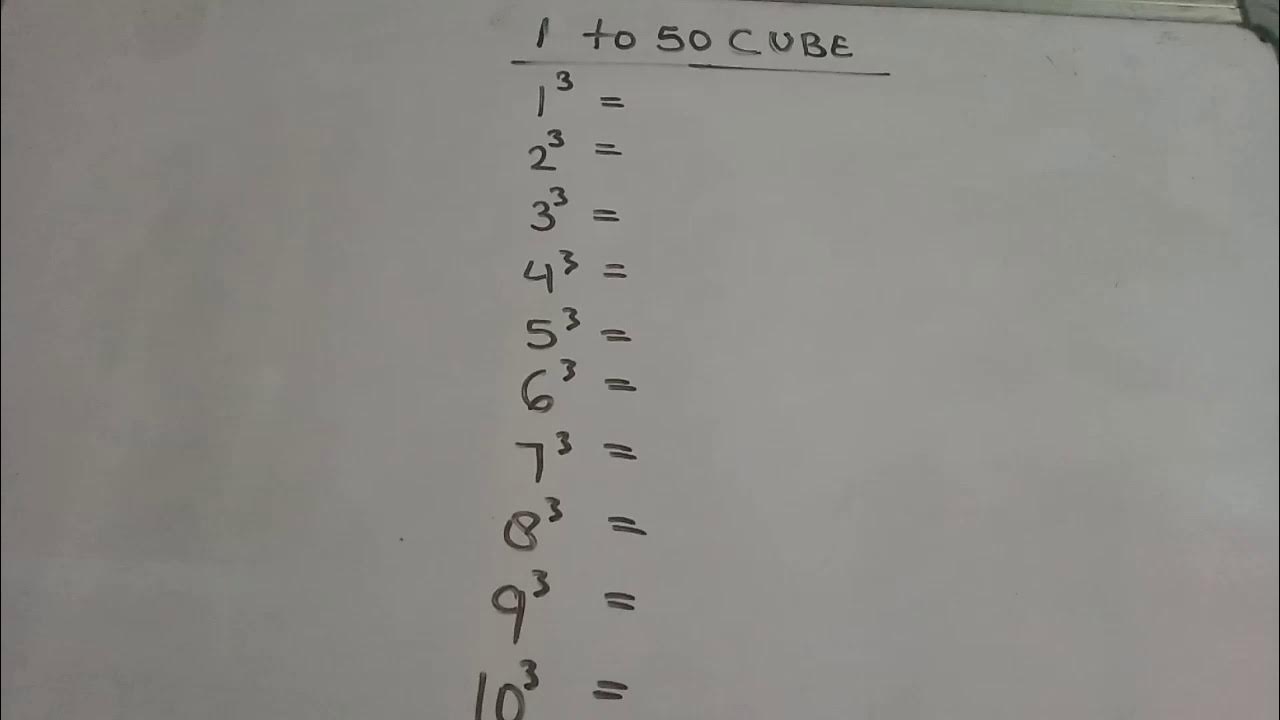 1 to 50 CUBE
1³ =
2³ =
3³ =
4³ =
5³ =
6³ =
7³ =
8³ =
9³ =
10³ =